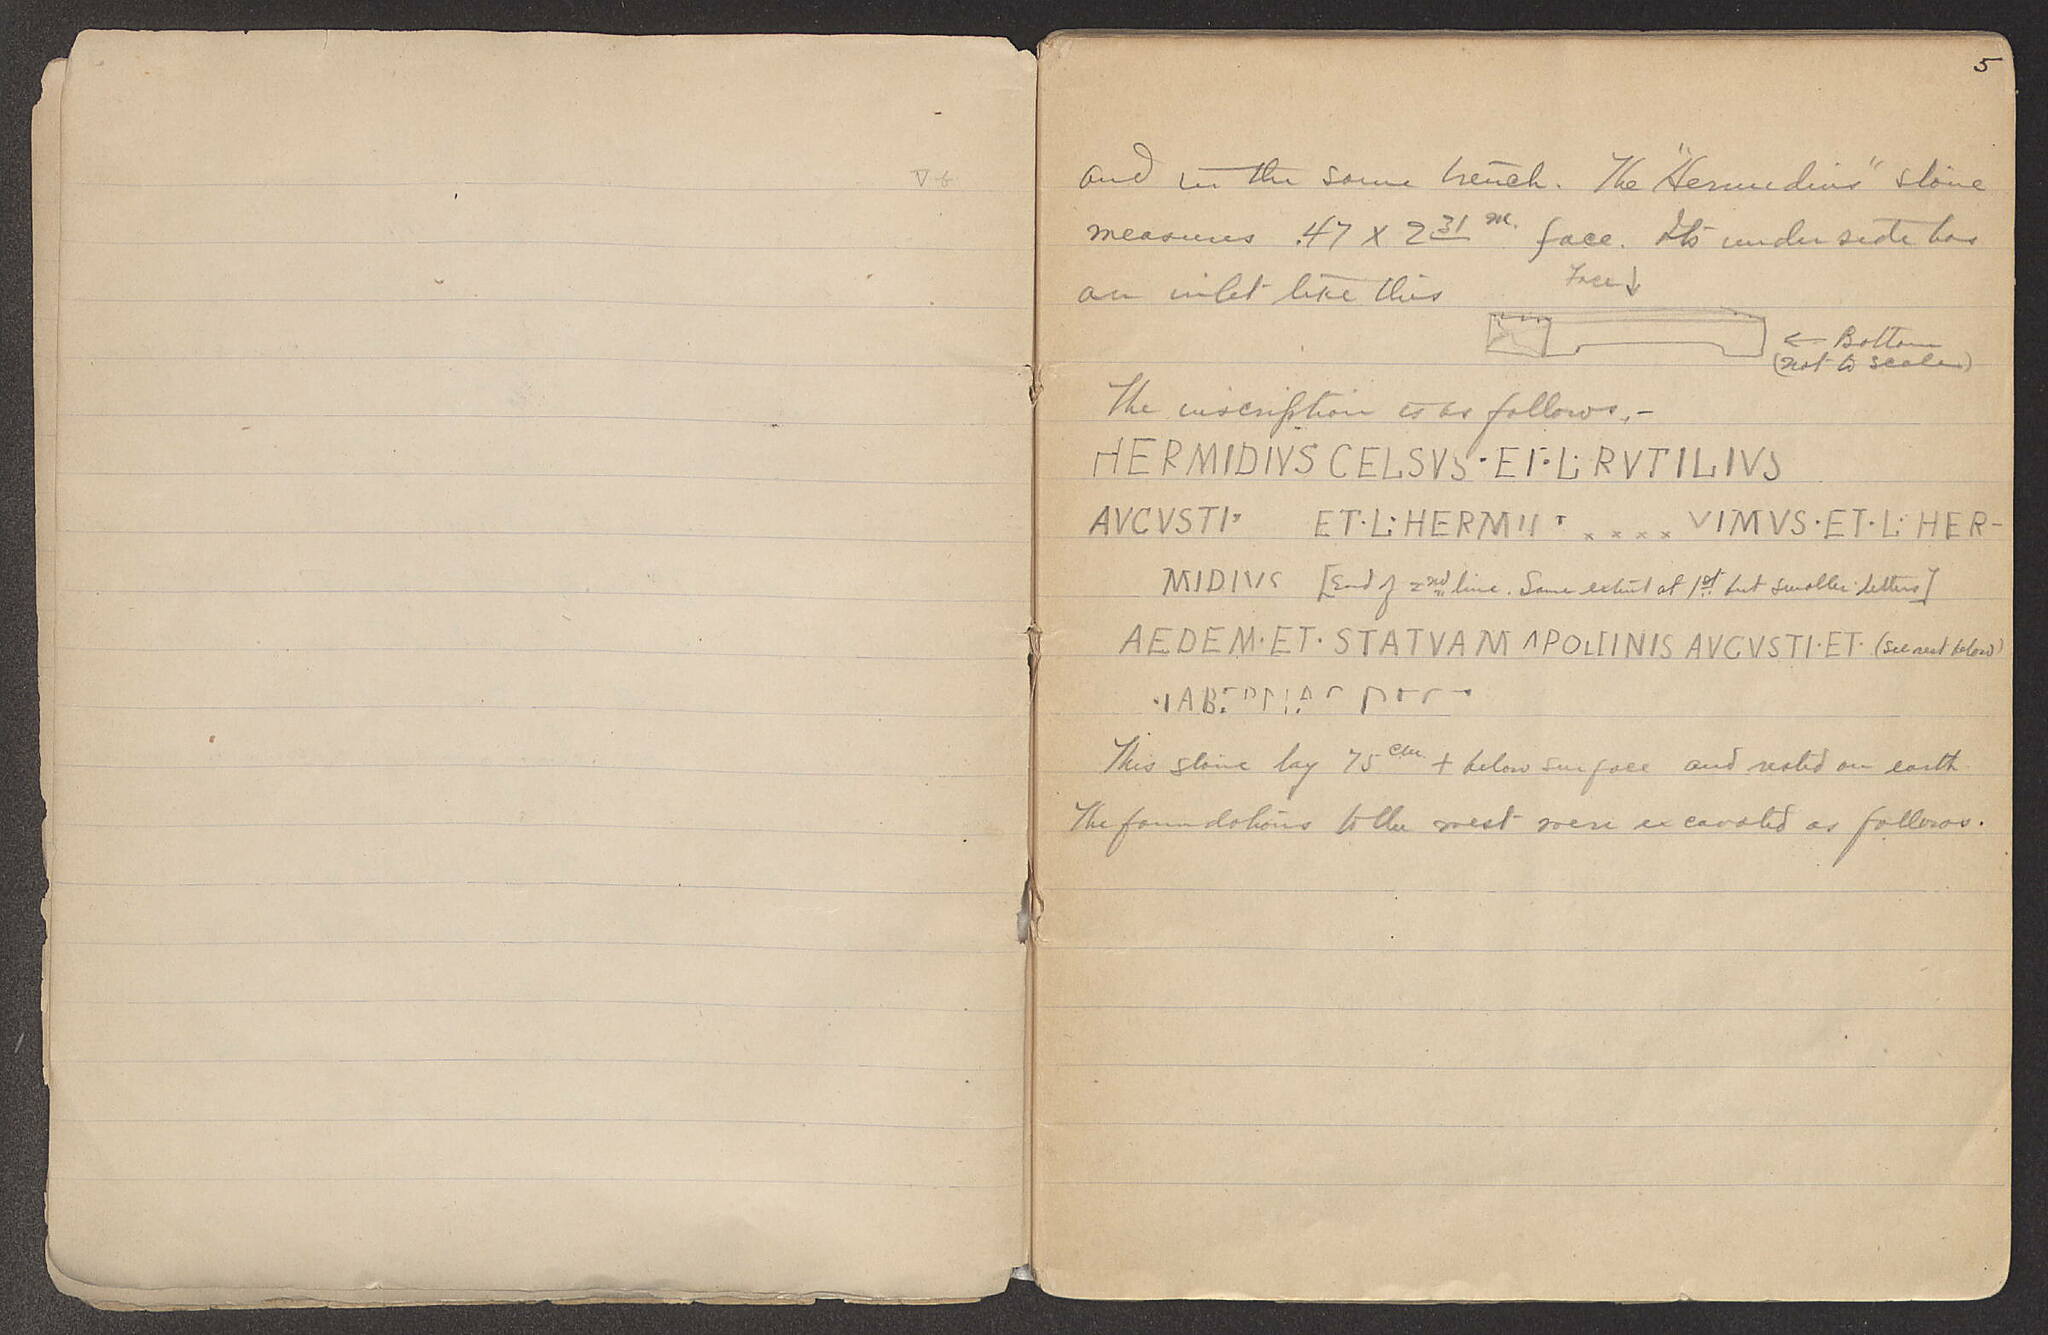 5
and in the same trench. The "Hermidius" stone
measures .47 x 2 31 m. face. Its under side has
an inlet like this
Face ↓
← Bottom
(not to scale)
The inscription is as follows.-
HERMIDIVS CELSVS·ET·L·RVTILIVS
AVGVSTI ET·L·HERMII × × × × VIMVS·ET·L·HER-
MIDIVS [End of 2nd line. Same extent as 1st but smaller letters]
AEDEM·ET·STATVAM APOLLINIS AVGVSTI·ET· (see next below)
This stone lay 75 cm + below surface and rested on earth
The foundations to the west were excavated as follows.